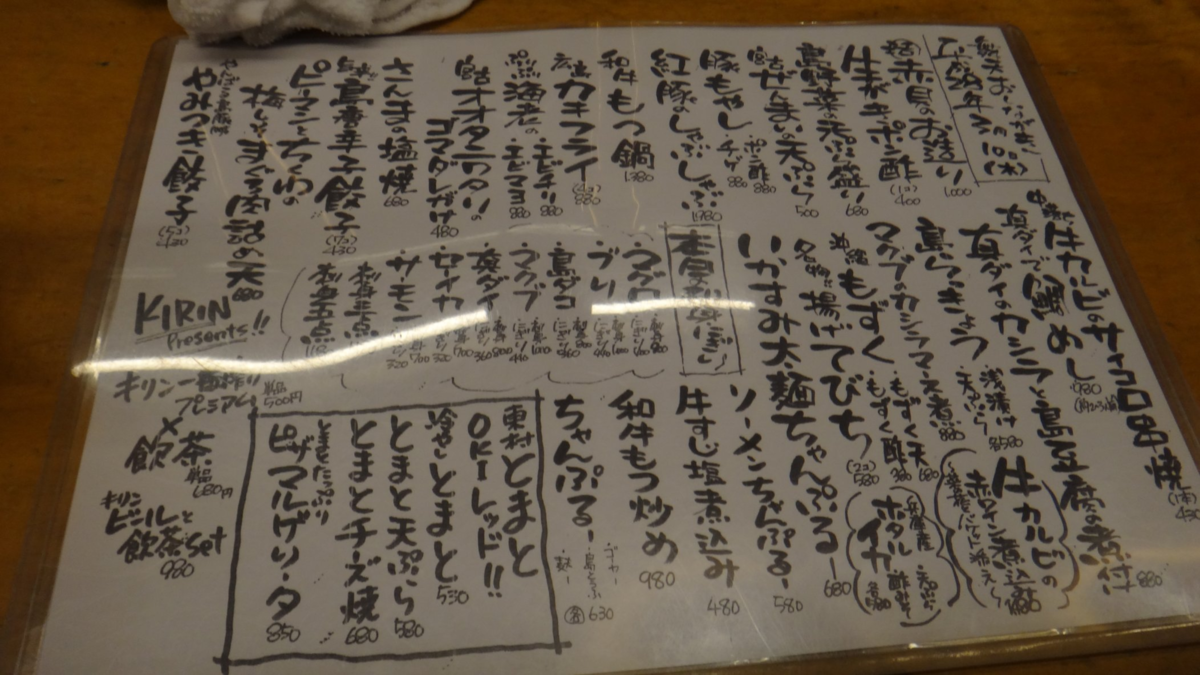 平成28年3月10日(木)
赤貝のお造り 1000
牛たたきポン酢 (1コ) 400
島野菜の天ぷら盛り 680
ぜんまいの天ぷら 500
豚もやし ・ポン酢 880 ・チーズ 880
紅豚のしゃぶしゃぶ 1980
和牛もつ鍋 1380
広島カキフライ (4コ) 880
海老の ・エビチリ 880 ・エビマヨ 880
宮古オオタニワタリの
ゴマダレがけ 480
さんまの塩焼 680
島唐辛子餃子 430
ピーマンとちくわの
梅しそまぐろ肉詰めの天 680
やみつき餃子 (5コ) 430
牛カルビのサイコロ串焼 (1本) 430
真ダイで鯛めし 980
真ダイのカシラと島豆腐の煮付 880
島らっきょう ・浅漬け ・天ぷら 各580
マグロのカシラマース煮 880
沖縄もずく ・もずく天 680 ・もずく酢 380
名物!!揚げてびち (2コ) 580
いかすみ太麺ちゃんぷるー 680
牛カルビの
赤ワイン煮込
兵庫産
ホタルイカ ・天ぷら ・酢みそ 各580
・マグロ
・ブリ
・島ダコ
・マグブ
・真ダイ
・セイイカ
・サーモン
お刺身三点
お刺身五点
ソーメンちゃんぷるー 580
牛すじ塩煮込み 480
和牛もつ炒め 980
ちゃんぷるー ・ゴーヤー ・島とうふ ・麩 (各) 630
東村とまと
OKIレッド!!
冷やしとまと 530
とまと天ぷら 580
とまとチーズ焼 680
とまとたっぷり
ピザマルゲリータ 850
KIRIN
Presents!!
キリン一番搾り!!
プレミアム 単品 500円
×
飲茶 単品 680円
キリン
ビールと
飲茶Set
980